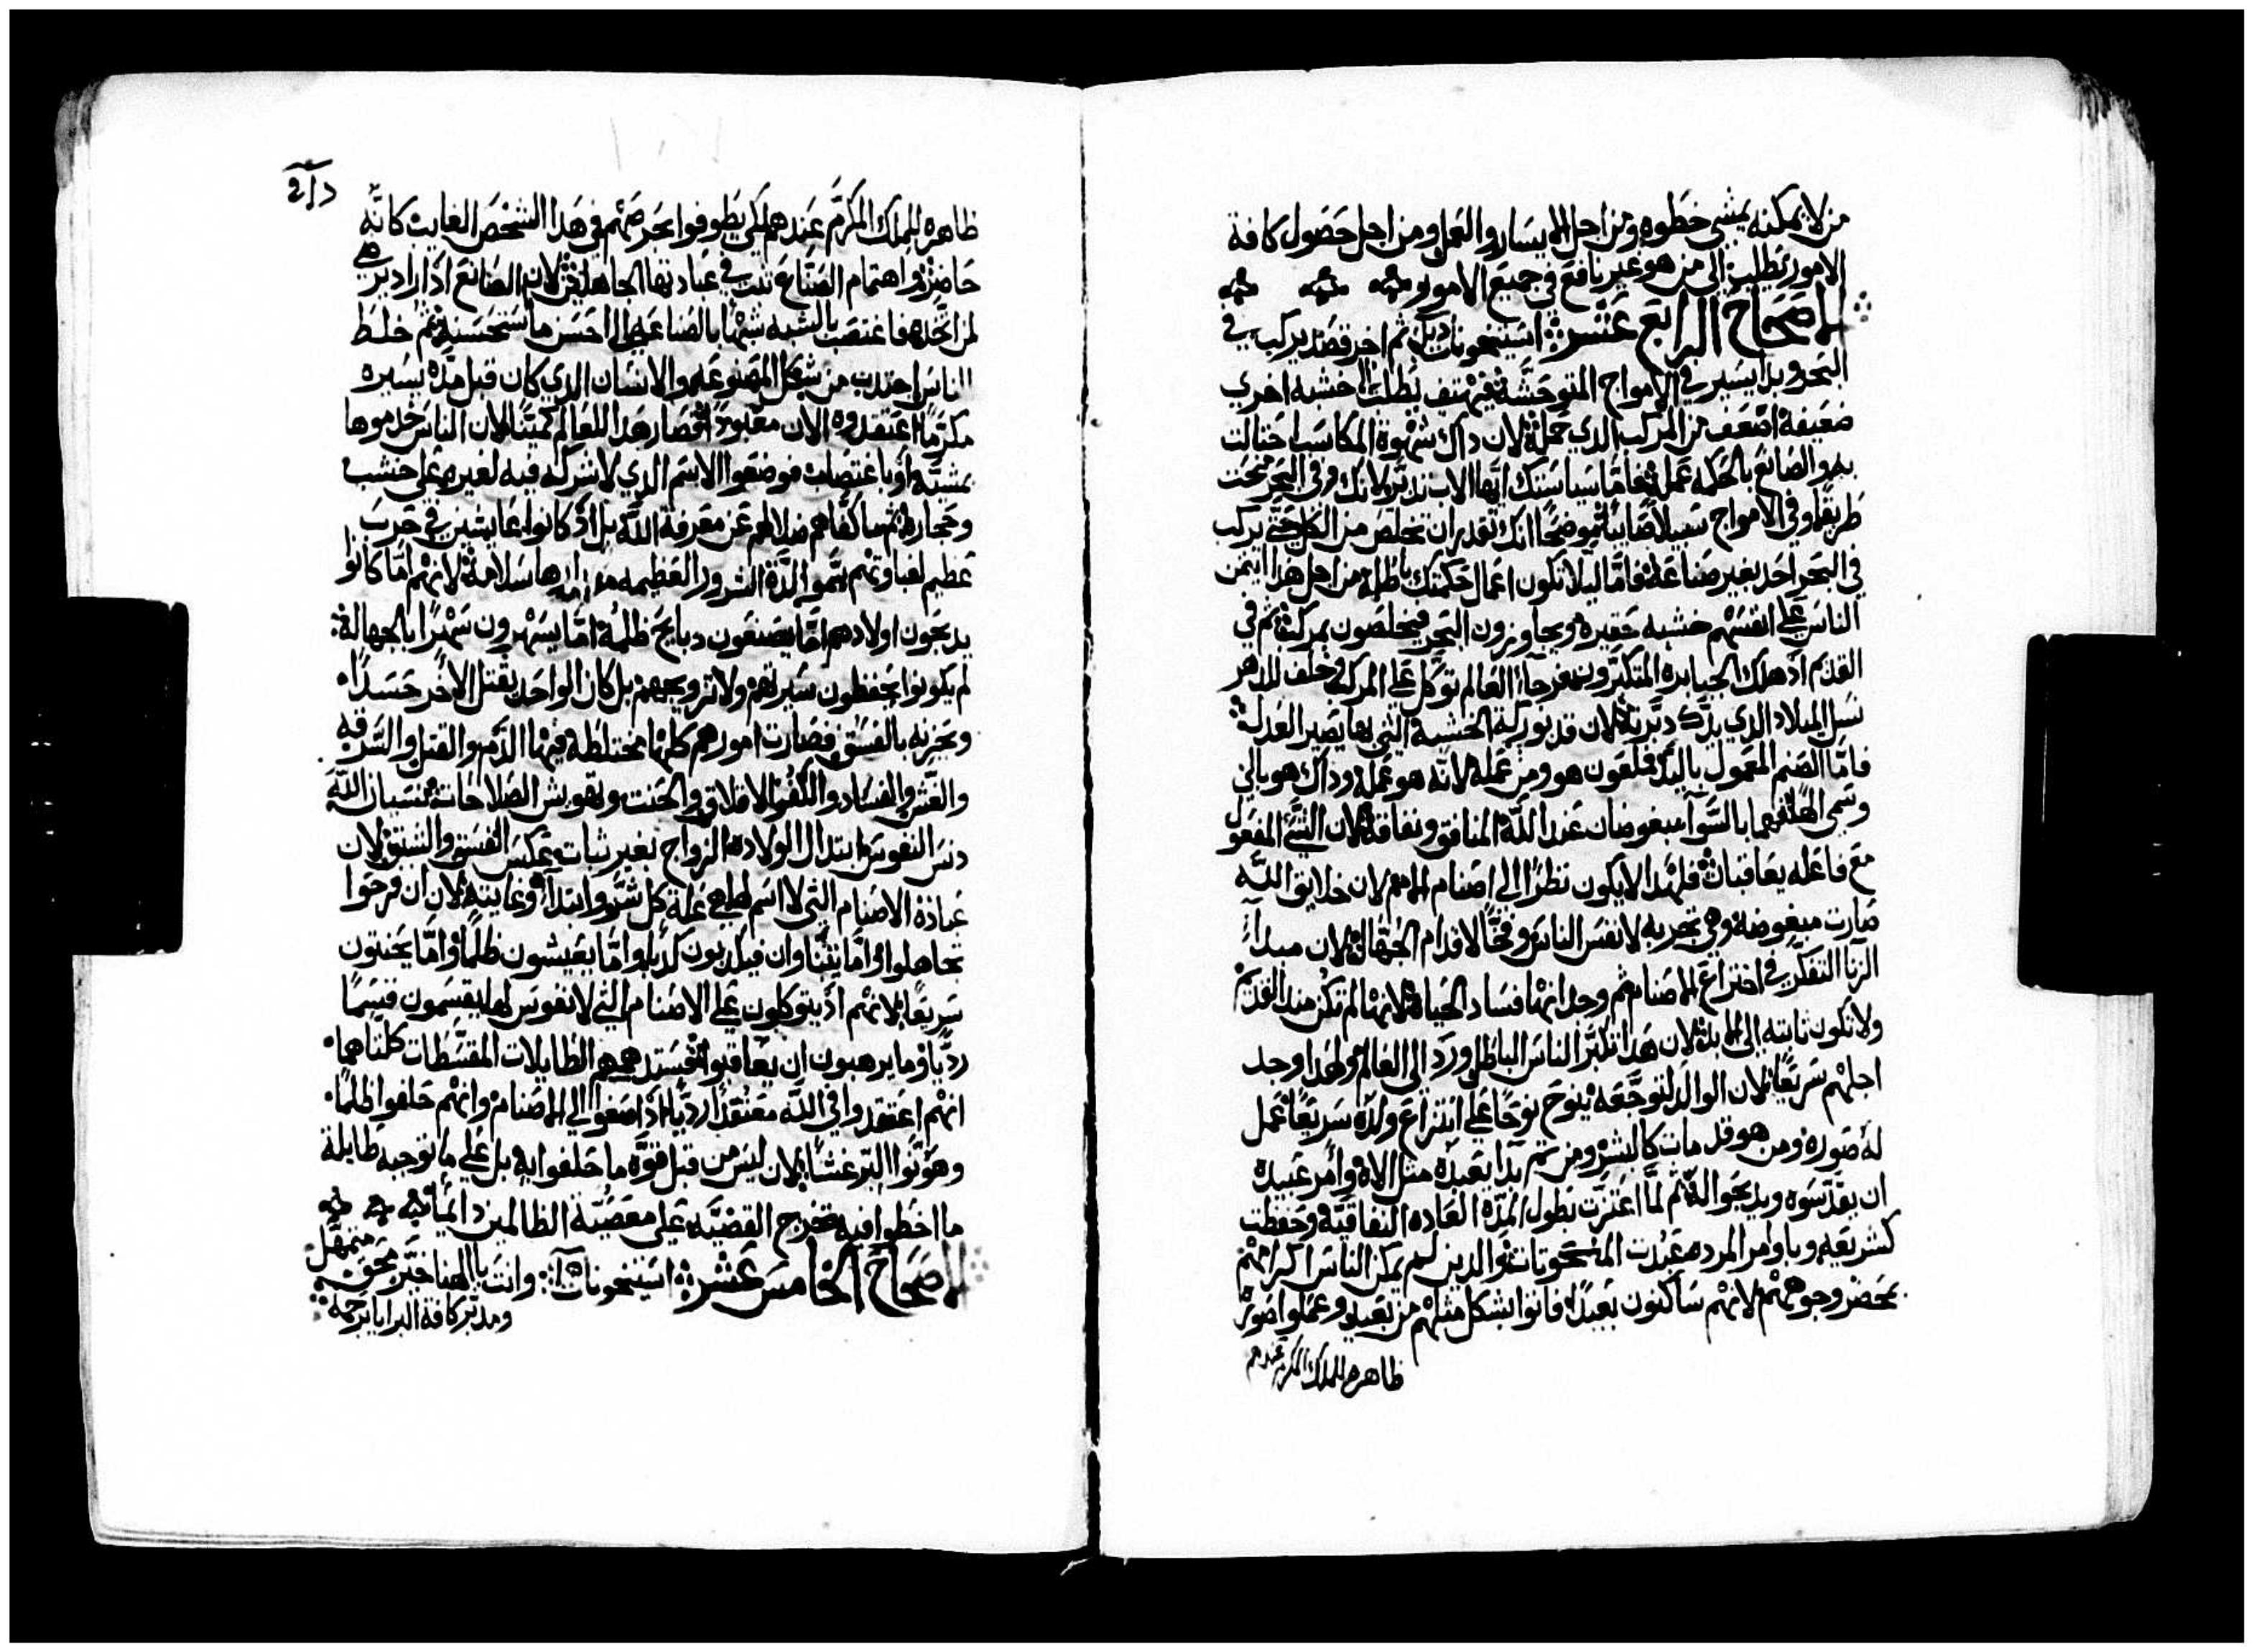 من لا يمكنه يمشي خطوه ومن اجل الايسار والعمل ومن اجل حصول كافة
الامور يطلب الى من هو غير نافع في جميع الامور
الاصحاح الرابع عشر استيخونات ثم اخر قصد يركب في
البحر وبدا يسير في الامواج المتوحشة فيهتف نطلب الى خشبه اخرى
ضعيفة اضعف من المركب الذي حمله لان ذاك شهوة المكاسب احتالت
به والصانع بالحكمه عمله فاما سياستك ايها الاب تدبر لانك وفي البحر منحت
طريقا وفي الامواج سبيلا صائنا موضحا انك تقدر ان تخلص من الكل حتى يركب
في البحر احد بغير صناعة فاما ليلا تكون اعمال حكمتك باطلة من اجل هذا ايتمن
الناس على انفسهم خشبه حقيره ويجاوزون البحر فيخلصون بمركبة ثم في
القدم اذ هلك الجبابره المتكبرون فرجا العالم توكل على المركب خلف للدهر
نسل الميلاد الذي بيدك دبرته لان قد بوركت الخشبة التي بها يصير العدل
فاما الصنم المعمول باليد فلعون هو ومن عمله لانه هو عمله وذاك هو بالي
وسمي الها فهما بالسوآ مبغوضان عند الله المنافق ونفاقه لان الشئ المفعول
مع فاعله يعاقبان فلهذا لا يكون نظرا الى اصنام الامم لان خلايق الله
صارت مبغوضة وهي تجربه لانفس الناس وفخا لاقدام الجهال لان مبدأ
الزنا التفكر في اختراع الاصنام ثم وجدانها فساد الحياة لانها لم تكن منذ القدم
ولا تكون ثابته الى الابد لان هذا تكبر الناس الباطل ورد الى العالم ولهذا وجد
اجلهم سريعا لان الوالد لتوجعه ينوح نوحا على انتزاع ولده سريعا عمل
له صوره ومن هو قد مات كالبشر ومن ثم بدا يعبده مثل الاه وامر عبيده
ان يقدسوه ويذبحوا له ثم لما اعتزت بطول المدة العاده النفاقية وحفظت
كشريعه وباوامر المرده عبدت المنحوتات والذين لم يمكن الناس اكرامهم
بمحضر وجوههم لانهم ساكنون بعيدا فاتوا بشكل مثلهم من بعيد وعملوا صورة
ظاهره للملك المكرم عندهم
ظاهره للملك المكرم عندهم لكي يطوفوا بحرصهم في هذا الشخص الغايب كانه
حاضر واهتمام الصناع ثبت في عبادتها الجاهلين لان الصانع اذ اراد يرضي
لمن اتخذه فاغتصب بالشبه شبها بالصناعه الى احسن ما يستحسنه ثم خلط
الناس اجتذب من شكل المصنوع والانسان الذي كان قبل مدة يسيره
مكرما اعتقدوه الان معبودا فصار هذا للعالم كمينا لان الناس خدموها
بمشية او باغتصاب فوضعوا الاسم الذي لا شركه فيه لغيره على خشب
وحجاره ثم ما كفاهم ضلالهم عن معرفة الله بل اذ كانوا عايشين في حرب
عظيم لغباوتهم سموا لذة الشرور العظيمه سلامة لانهم اما كانوا
يذبحون اولادهم اما يصنعون ذبايح ظلمة اما يسهرون سهرا بالجهالة
لم يكونوا يحفظون سيرتهم ولا تزويجهم بل كان الواحد يقتل الاخر حسدا
ويحزنه بالفسق فصارت امورهم كلها مختلطة فيها الدم والقتل والسرقه
والغش والفساد والكفر الاقلاق والحنث وتهويش الصلاحات نسيان الله
دنس النفوس ابتدال الولاده الزواج بغير ثبات عكس الفسق والشبق لان
عبادة الاصنام التي لا اسم لها هي علة كل شر وابتدآه وغايته لان ان فرحوا
تجاهلوا اما يتنباوان فيكذبون كذبا واما يعيشون ظلما واما يحنثون
سريعا لانهم اذ يتوكلون على الاصنام التي لا نفوس لها يقسمون قسما
رديا وما يرهبون ان يعاقبوا فستدهمهم الطايلات المقسطات كلتاهما
انهم اعتقدوا في الله معتقدا رديا اذ اصغوا الى الاصنام وانهم حلفوا ظلما
وهونوا البر غشا لان ليس من قبل قوة ما حلفوا به بل على ما توجبه طايلة
ما اخطوا فيه تخرج القضية على معصية الظالمين دايما
الاصحاح الخامس عشر استيخونات وانت يا الهنا خير محق متمهل
ومدبر كافة البرايا برحمه